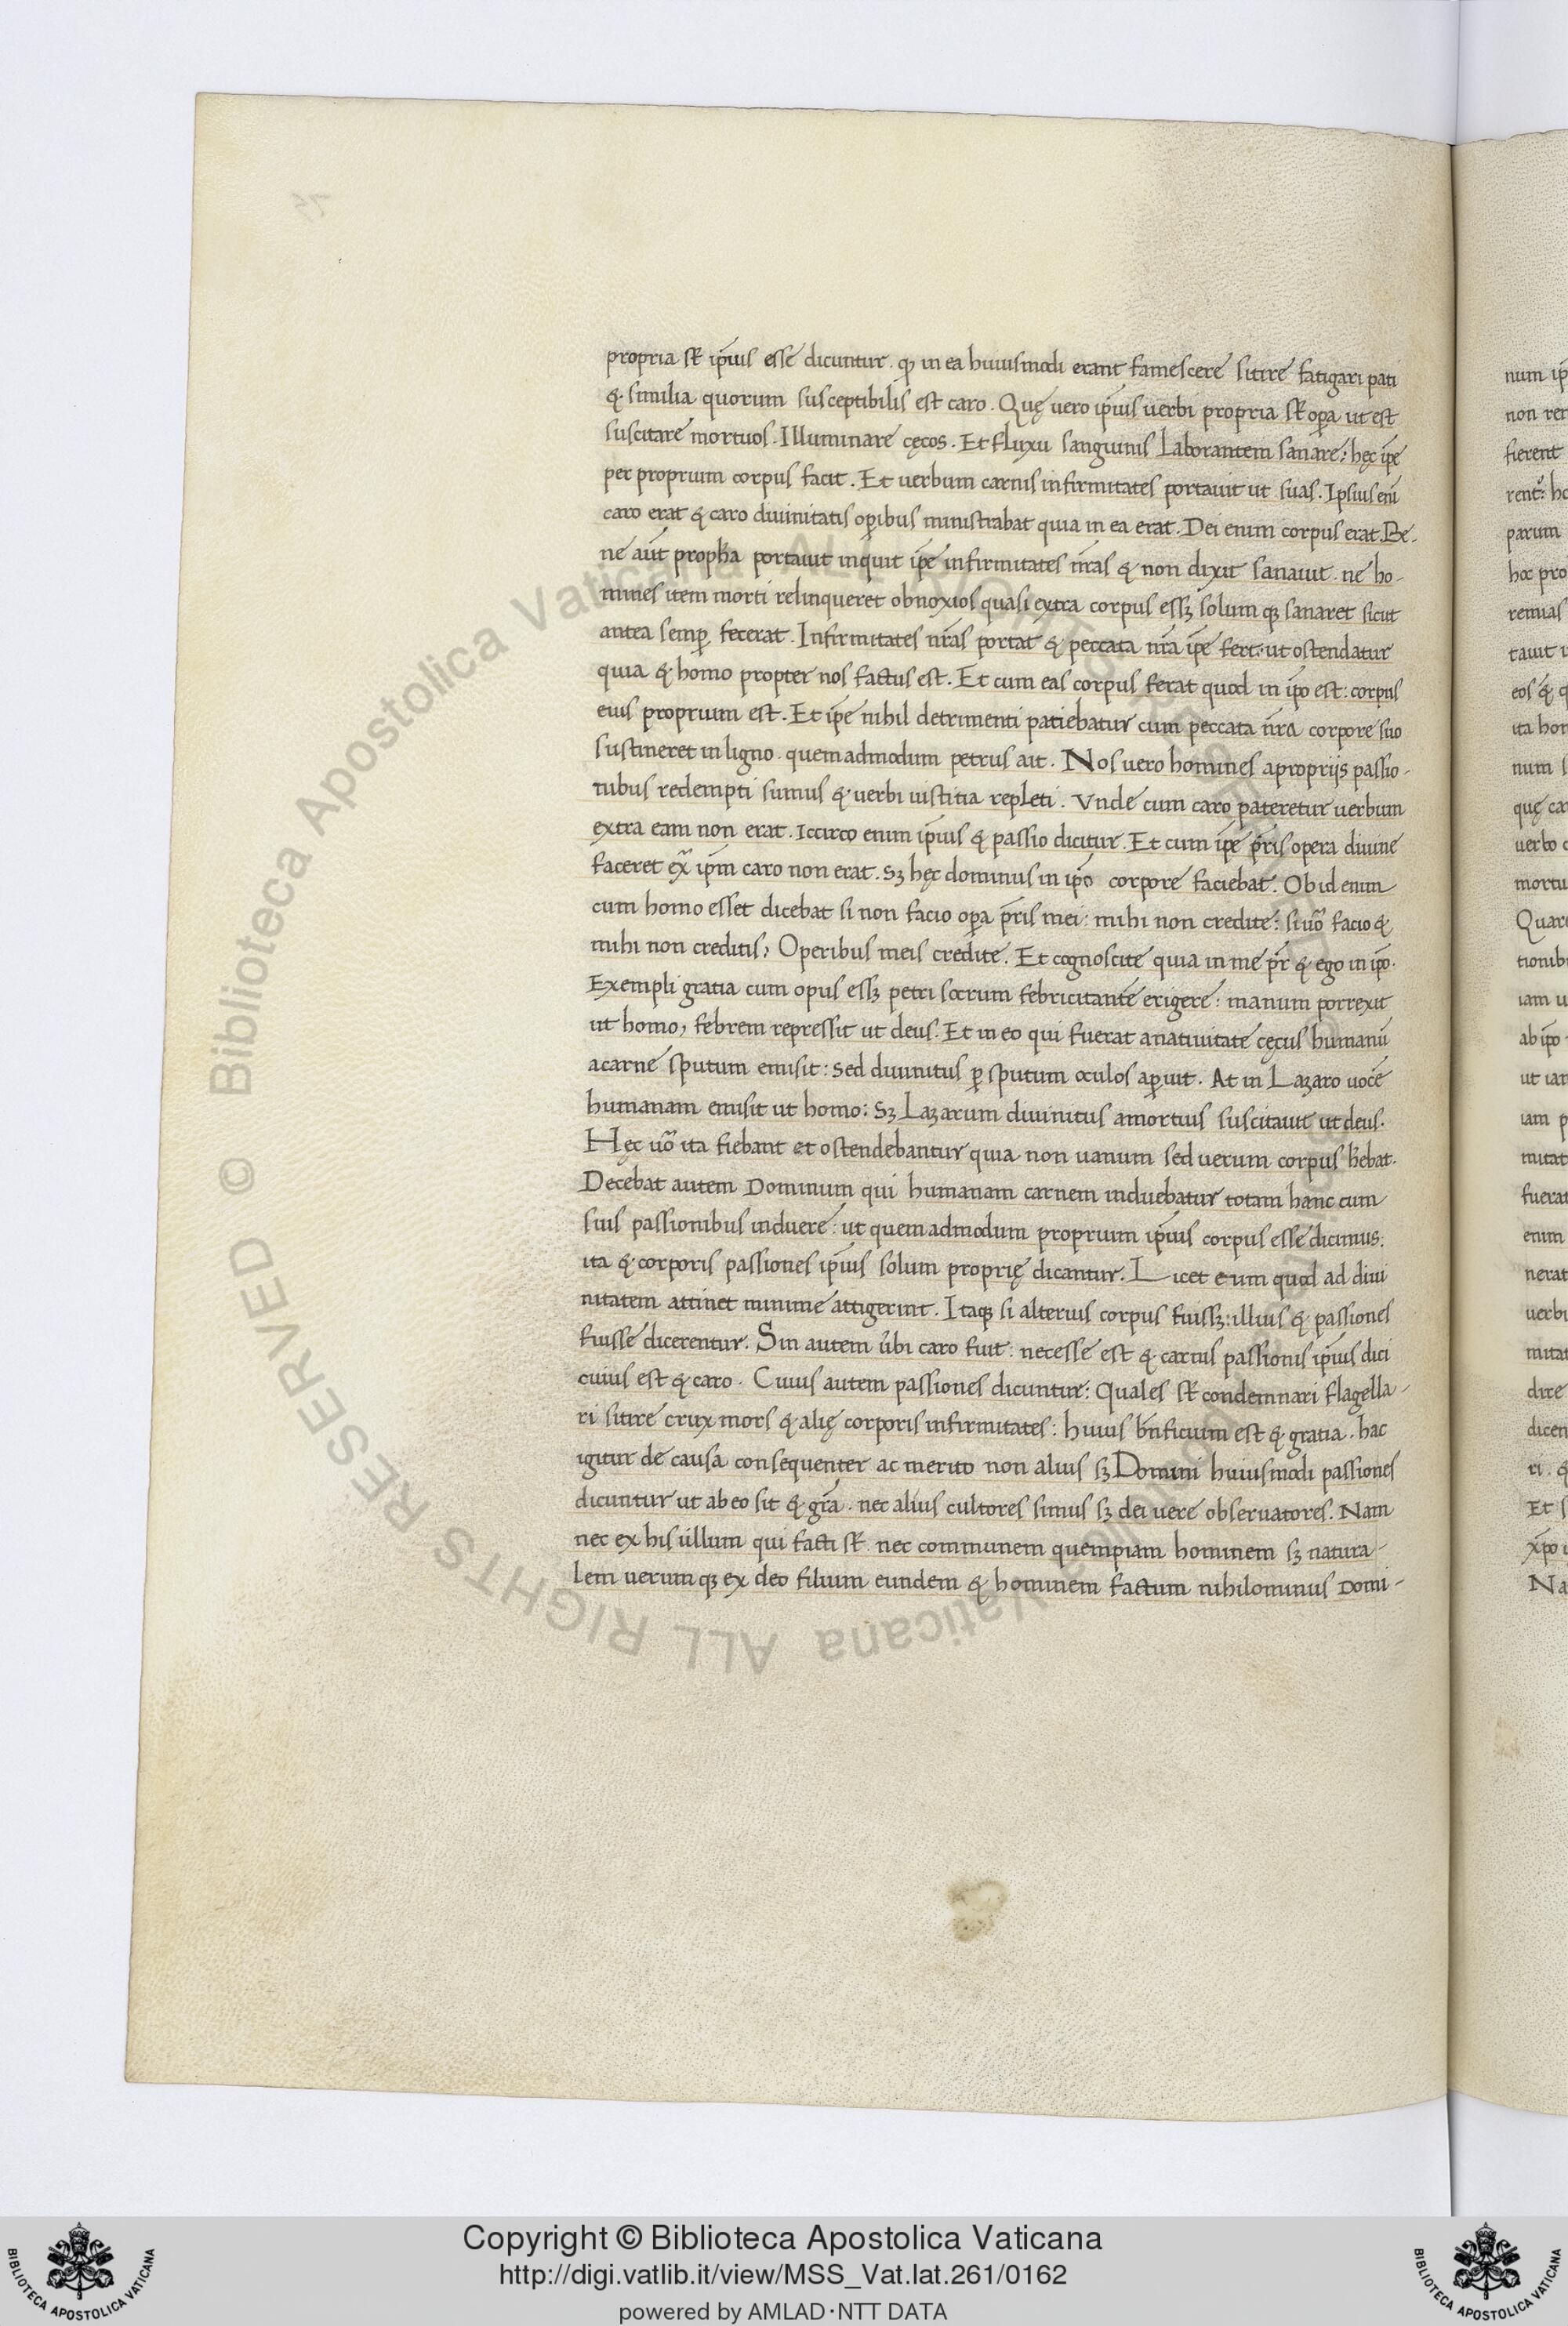 propria st̄ ip̄ius esse dicuntur. ꝙ in ea huiusmodi erant famescere sitire fatigari pati
& similia quorum susceptibilis est caro. Quę uero ip̄ius uerbi propria st̄ oꝑa ut est
suscitare mortuos. Illuminare cęcos. Et fluxu sanguinis laborantem sanare; hęc ip̄e
per proprium corpus facit. Et uerbum carnis infirmitates portauit ut suas. Ipsius eni
caro erat & caro diuinitatis oꝑibus ministrabat quia in ea erat. Dei enim corpus erat. Be-
ne aut̄ proph̄a portauit inquit ip̄e infirmitates nr̄as & non dixit sanauit. ne ho-
mines item morti relinqueret obnoxios quasi extra corpus essꝫ solum qꝫ sanaret sicut
antea semꝑ fecerat. Infirmitates nr̄as portat & peccata nr̄a ip̄e fert: ut ostendatur
quia & homo propter nos factus est. Et cum eas corpus ferat quod in ip̄o est: corpus
eius proprium est. Et ip̄e nihil detrimenti patiebatur cum peccata nr̄a corpore suo
sustineret in ligno. quemadmodum petrus ait. Nos uero homines a propriis passio-
nibus redempti sumus & uerbi iustitia repleti. Vnde cum caro pateretur uerbum
extra eam non erat. Iccirco enim ip̄ius & passio dicitur. Et cum ip̄e pr̄is opera diuine
faceret ex̄ ip̄m caro non erat. sꝫ hęc dominus in ip̄o corpore faciebat. Ob id enim
cum homo esset dicebat si non facio oꝑa pr̄is mei: mihi non credite: si uō facio &
mihi non creditis; Operibus meis credite. Et cognoscite quia in me pr̄ & ego in ip̄o.
Exempli gratia cum opus essꝫ petri socrum febricitantē erigere: manum porrexit
ut homo, febrem repressit ut deus. Et in eo qui fuerat a natiuitate cęcus humanū
a carne sputum emisit: sed diuinitus ꝑ sputum oculos aꝑuit. At in Lazaro uocē
humanam emisit ut homo: sꝫ Lazarum diuinitus a mortuis suscitauit ut deus.
Hęc uō ita fiebant et ostendebantur quia non uanum sed uerum corpus h̄ebat.
Decebat autem Dominum qui humanam carnem induebatur totam hanc cum
suis passionibus induere: ut quemadmodum proprium ip̄ius corpus esse dicimus;
ita & corporis passiones ip̄ius solum proprię dicantur. Licet eum quod ad diui
nitatem attinet minime attigerint. Itaqꝫ si alterius corpus fuissꝫ: illius & passiones
fuisse dicerentur. Sin autem ūbi caro fuit: necesse est & carnis passionis ip̄ius dici
cuius est & caro. Cuius autem passiones dicuntur: Quales st̄ condemnari flagella-
ri sitire crux mors & alię corporis infirmitates: huius bn̄ficium est & gratia. hac
igitur de causa consequenter ac merito non alius sꝫ Domini huiusmodi passiones
dicuntur ut ab eo sit & gr̄a. nec alius cultores simus sꝫ dei uere obseruatores. Nam
nec ex his ullum qui facti st̄. nec communem quempiam hominem sꝫ natura-
lem uerumqꝫ ex deo filium eundem & hominem factum nihilominus Domi-
num ip̄
non rer
fierent
parum
hoc pro
remias
tauit
ita hon
num
quę car
uerbo
mortu
Quare
tionib
iam
ab ip̄o
ut iam
iam
mitat
fuerat
enim
nerat
uerbi
mitat
dire
dicen
ri. &
Et
xp̄o
Na
© Biblioteca Apostolica Vaticana ALL RIGHTS RESERVED © Biblioteca Apostolica Vaticana ALL RIGHTS RESERVED
Copyright © Biblioteca Apostolica Vaticana
http://digi.vatlib.it/view/MSS_Vat.lat.261/0162
powered by AMLAD·NTT DATA
BIBLIOTECA APOSTOLICA VATICANA
BIBLIOTECA APOSTOLICA VATICANA